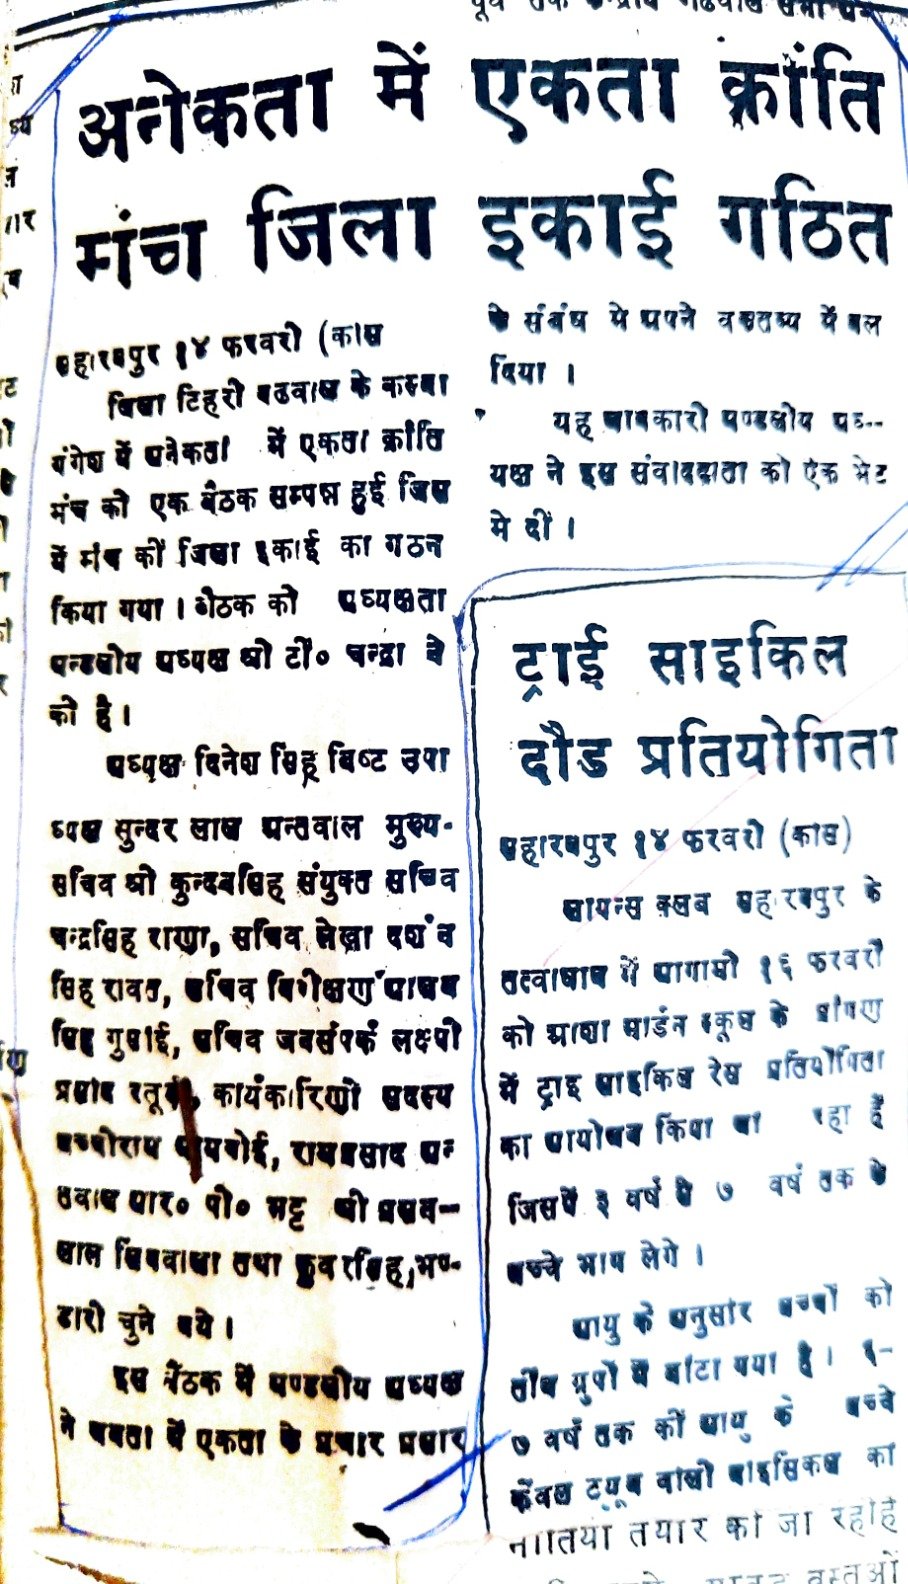 अनेकता में एकता क्रांति
मंच जिला इकाई गठित
सहारनपुर १४ फरवरी (कांस
जिला टिहरी गढवाल के कस्बा
में अनेकता में एकता क्रांति
मंच की एक बैठक सम्पन्न हुई जिस
में मंच की जिला इकाई का गठन
किया गया । बैठक की अध्यक्षता
मन्डलीय अध्यक्ष श्री टी० चन्द्रा ने
की है ।
अध्यक्ष दिनेश सिंह बिष्ट उपा
ध्यक्ष सुन्दर लाल अन्तवाल मुख्य-
सचिव श्री कुन्दनसिंह संयुक्त सचिव
चन्द्रसिंह राणा, सचिव लेखा दर्शन
सिंह रावत, सचिव निरीक्षण
सिंह गुसांई, सचिव जनसंपर्क लक्ष्मी
प्रसाद कार्यकारिणी सदस्य
रामप्रसाद अन
तवाल आर० पी० भट्ट श्री
लाल तथा कुवरसिंह, भण-
डारी चुने गये ।
इस बैठक में मण्डलीय अध्यक्ष
ने जनता में एकता के प्रचार प्रसार
के संबंध मे अपने वक्तव्य में बल
दिया ।
यह जानकारी मण्डलीय अध--
यक्ष ने इस संवाददाता को एक भेट
मे दी ।
ट्राई साइकिल
दौड प्रतियोगिता
सहारनपुर १४ फरवरी (कांस)
सायन्स क्लब सहारनपुर के
तत्वाधान में आगामी १६ फरवरी
को आशा मार्डन स्कूल के प्रांगण
में ट्राइ साइकिल रेस प्रतियोगिता
का आयोजन किया जा रहा है
जिसमें ३ वर्ष से ७ वर्ष तक के
बच्चे भाग लेगे ।
आयु के अनुसार बच्चों को
तीन ग्रुपों में बांटा गया है ।
७ वर्ष तक की आयु के बच्चे
केवल ट्यूब वाली बाइसिकल का
तयार की जा रही है